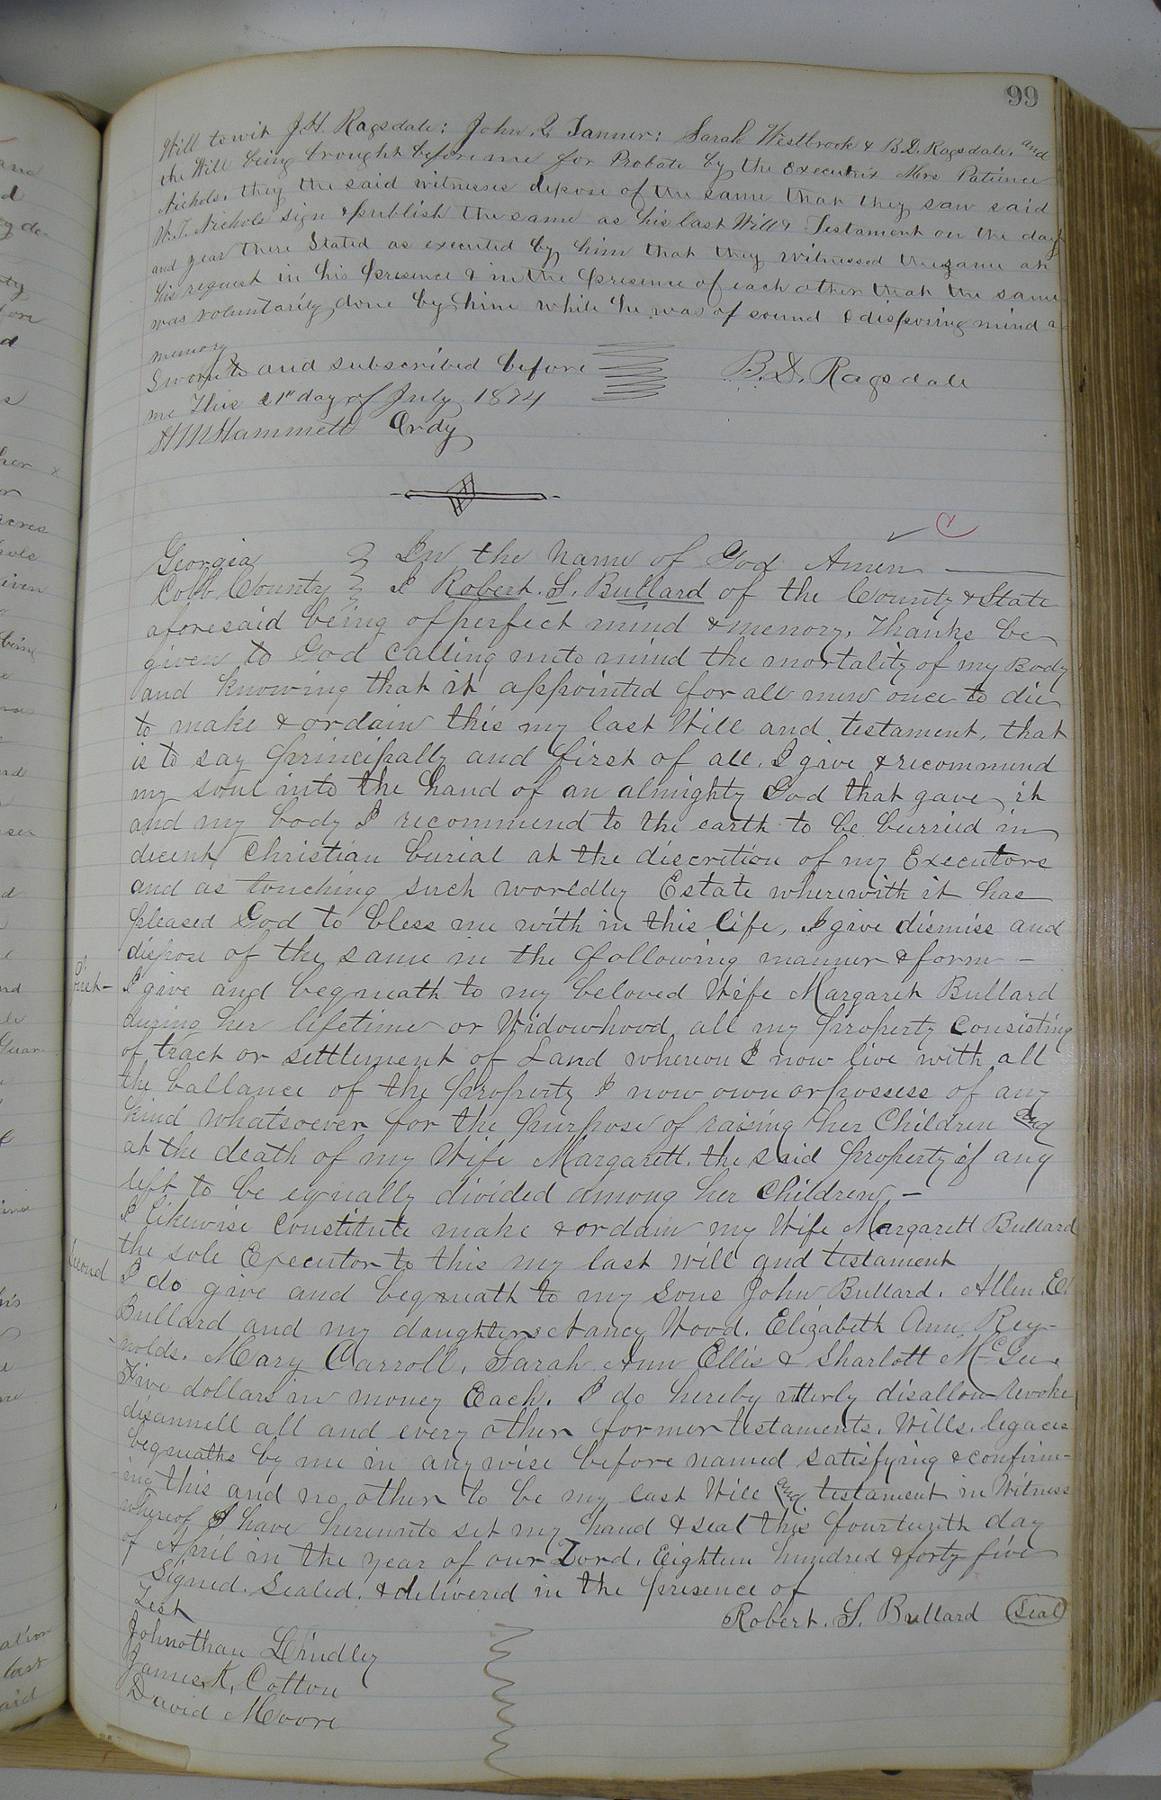 99
Will to wit J.H. Ragsdale; John. Q Tanner; Sarah Westbrook & B.D. Ragsdale. and
the Will being brought before me for Probate by the Executrix Mrs Patience
Nichols. they the said witnesses depose of the same that they saw said
W.T. Nichols sign & publish the same as his last Will & Testament on the day
and year there Stated as executed by him that they witnessed the same at
his request in his presence & in the presence of each other that the same
was voluntarily done by him while he was of sound & disposing mind &
memory
Sworn to and subscribed before B.D. Ragsdale
me This 21st day of July 1874
H M Hammett Ordy
Georgia In the Name of God Amen
Cobb County I Robert. S. Bullard of the County & State
aforesaid being of perfect mind & memory. Thanks be
given to God calling unto mind the mortality of my Body
and knowing that it appointed for all men once to die
to make & ordain this my last Will and testament, that
is to say principally and first of all. I give & recommend
my soul into the hand of an almighty God that gave it
and my body I recommend to the earth to be burried in
decent Christian burial at the discretion of my Executors
and as touching such woredly Estate wherewith it has
pleased God to bless me with in this life, I give dismiss and
dispose of the same in the following manner & form –
I give and bequeath to my beloved Wife Margaret Bullard
during her lifetime or Widowhood all my property Consisting
of tract or settlement of Land whereon I now live with all
the ballance of the property I now own or possess of any
kind whatsoever for the purpose of raising her Children and
at the death of my Wife Margarett. the said property if any
left to be equally divided among her Children –
I likewise Constitute make & ordain my Wife Margarett Bullard
the sole Executor to this my last will and testament
Second I do give and bequeath to my Sons John Bullard. Allen. E.
Bullard and my daughters Nancy Wood. Elizabeth Ann Rey-
nolds. Mary Carroll, Sarah Ann Ellis & Sharlott McGee.
Five dollars in money Each. I do hereby utterly disallow revoke
disannell all and every other former testaments. Wills. legacies
bequeaths by me in any wise before named satisfying & confirm-
ing this and no other to be my last Will and testament in Witness
whereof I have hereunto set my hand & seal this fourteenth day
of April in the year of our Lord. Eighteen hundred & forty five
Signed. Sealed. & delivered in the presence of
Test Robert. S. Bullard Seal
Johnothan Lindley
James K. Cotton
David Moore